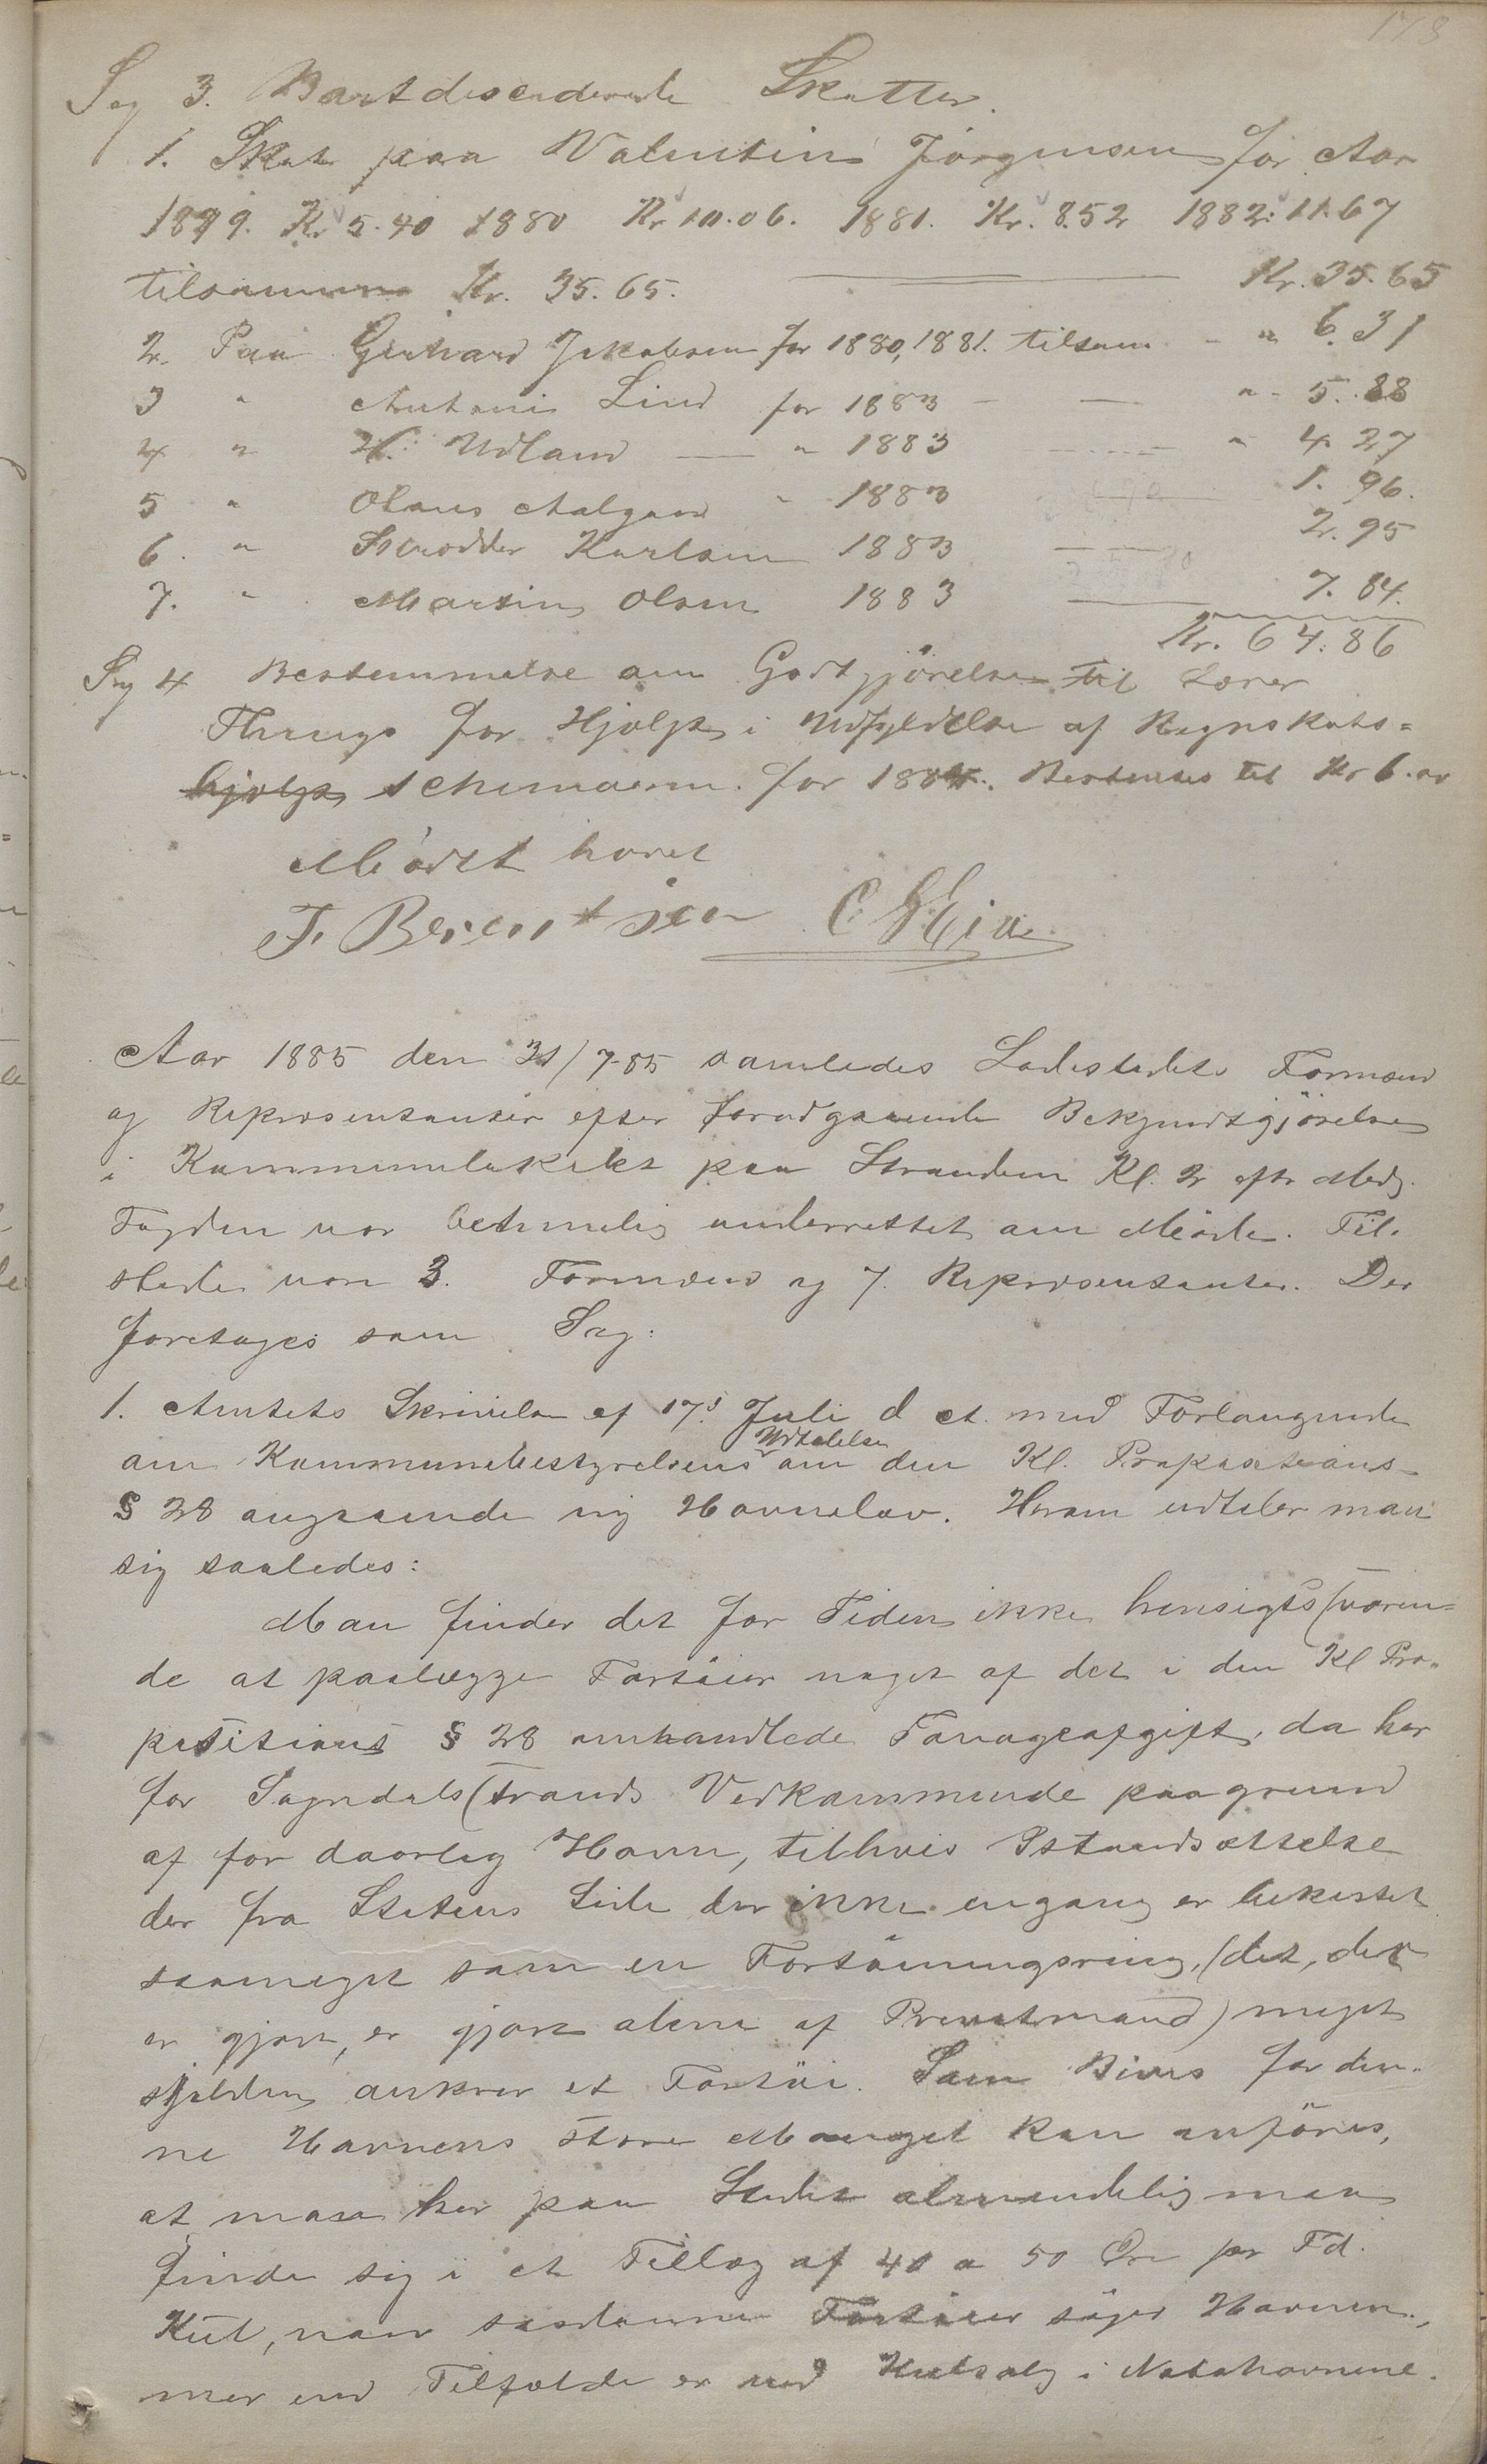 178
Sag 3. Bortdesiderende Skatter.
1. Skat paa Valentin Jörgensen for Aar
1879. Kr 5.40 1880 Kr 10.06. 1881. Kr. 8.52 1882: 11.67
tilsammen Kr. 35.65. Kr. 35.65
2. Paa Gerhard Jakobsen for 1880, 1881. tilsam - " 6.31
3 " Antoni Lind for 1883 - " - 5.88
4 " H. Udland " 1883 " 4.27
5 " Olaus Aalgaard " 1883 1.96.
6. " Skrædder Karlsen 1883 2.95
7. " Martin Olsen 1883 7.84.
Kr. 64.86
Sag 4 Bestemmelse om Godtgjörelse til Lærer
for Hjælp i Udfyldelse af Regnskabs=
hjælp schemaerne for 1884. Bestemtes til Kr 6.00
Mödet hævet
F. Berentsen
Aar 1885 den 31/7-85 samledes Ladestedets Formænd
og Repræsentanter efter forudgaaende Bekjendtgjörelse
i Kommunelokalet paa Stranden Kl. 2 efter Medg.
Fogden var betimelig underrettet om Möde. Til.
stede vare 3. Formænd og 7. Repræsentanter. Der
foretoges som Sag:
1. Amtets Skrivelse af 17. Juli d A. med Forlangende
om Kommunebestyrelsens Udtalelse om den Kl. Propositions
§ 28 angaaende ny Havnelov. Herom udtaler man
sig saaledes:
Man finder det for Tiden ikke hensigtssvaren=
de at paalægge Fartöier noget af det i den Kl Pro=
positions § 28 omhandlede Tonnageafgift, da her
for Sogndalsstrands Vedkommende paa grund
af for daarlig Havn, til hvis Istandsættelse
der fra Statens Side der ikke engang er bekostet
saameget som en Fortöiningsring, (det, der
er gjort, er gjort alene af Privatmænd) meget
sjelden ankrer et Fartöi. Som Bevis for den=
ne Havnens store Mangel kan anföres,
at man her paa Stedet almindelig maa
finde sig i et Tillæg af 40 a 50 Öre pr Td.
Kul, naar saadanne Fartöier söger Havnen,
mer end Tilfælde er ved Kulsalg i Nabohavnene.